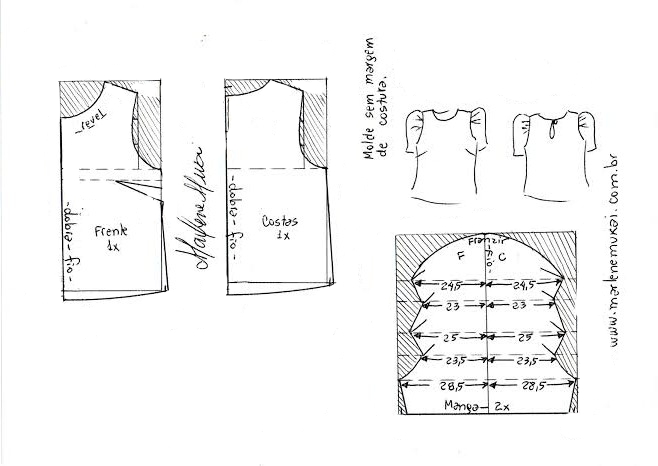 revel
-dobra-fio-
Frente
1x
Marlene Mukai
-dobra-fio-
Costas
1x
Molde sem margem
de costura.
Franzir
F
-fio-
C
24,5 24,5
23 23
25 25
23,5 23,5
28,5 28,5
Manga - 2x
www.marlenemukai.com.br